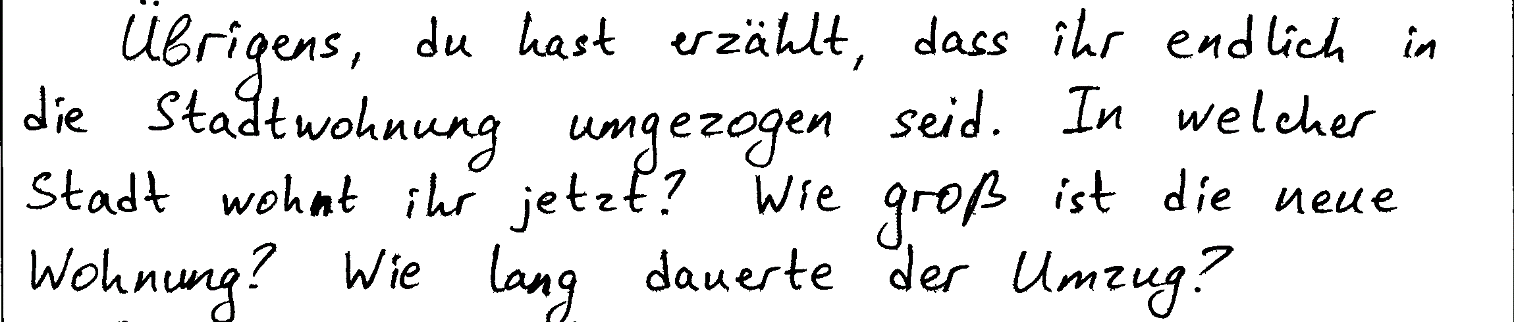 Übrigens, du hast erzählt, dass ihr endlich in
die Stadtwohnung umgezogen seid. In welcher
Stadt wohnt ihr jetzt? Wie groß ist die neue
Wohnung? Wie lang dauerte der Umzug?